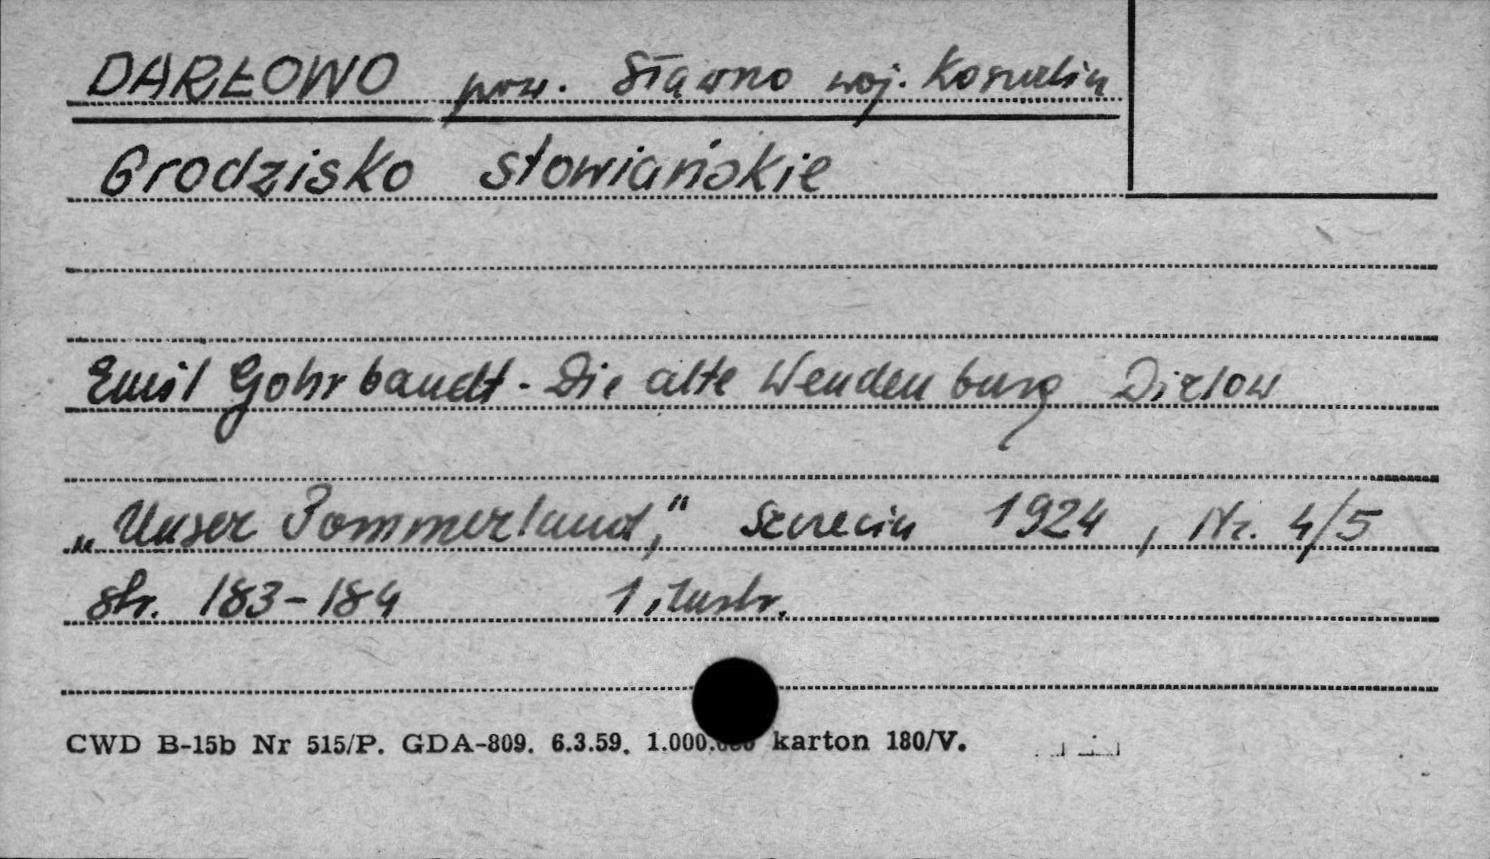 DARŁOWO pow. Sławno woj. Koszalin
Grodzisko słowiańskie
Emil Gohrbandt - Die alte Wendenburg Dirlow
„Unser Pommerland,“ Szczecin 1924, Nr. 4/5
str. 183-184 1 ilustr.
CWD B-15b Nr 515/P. GDA-809. 6.3.59. 1.000.000 karton 180/V.